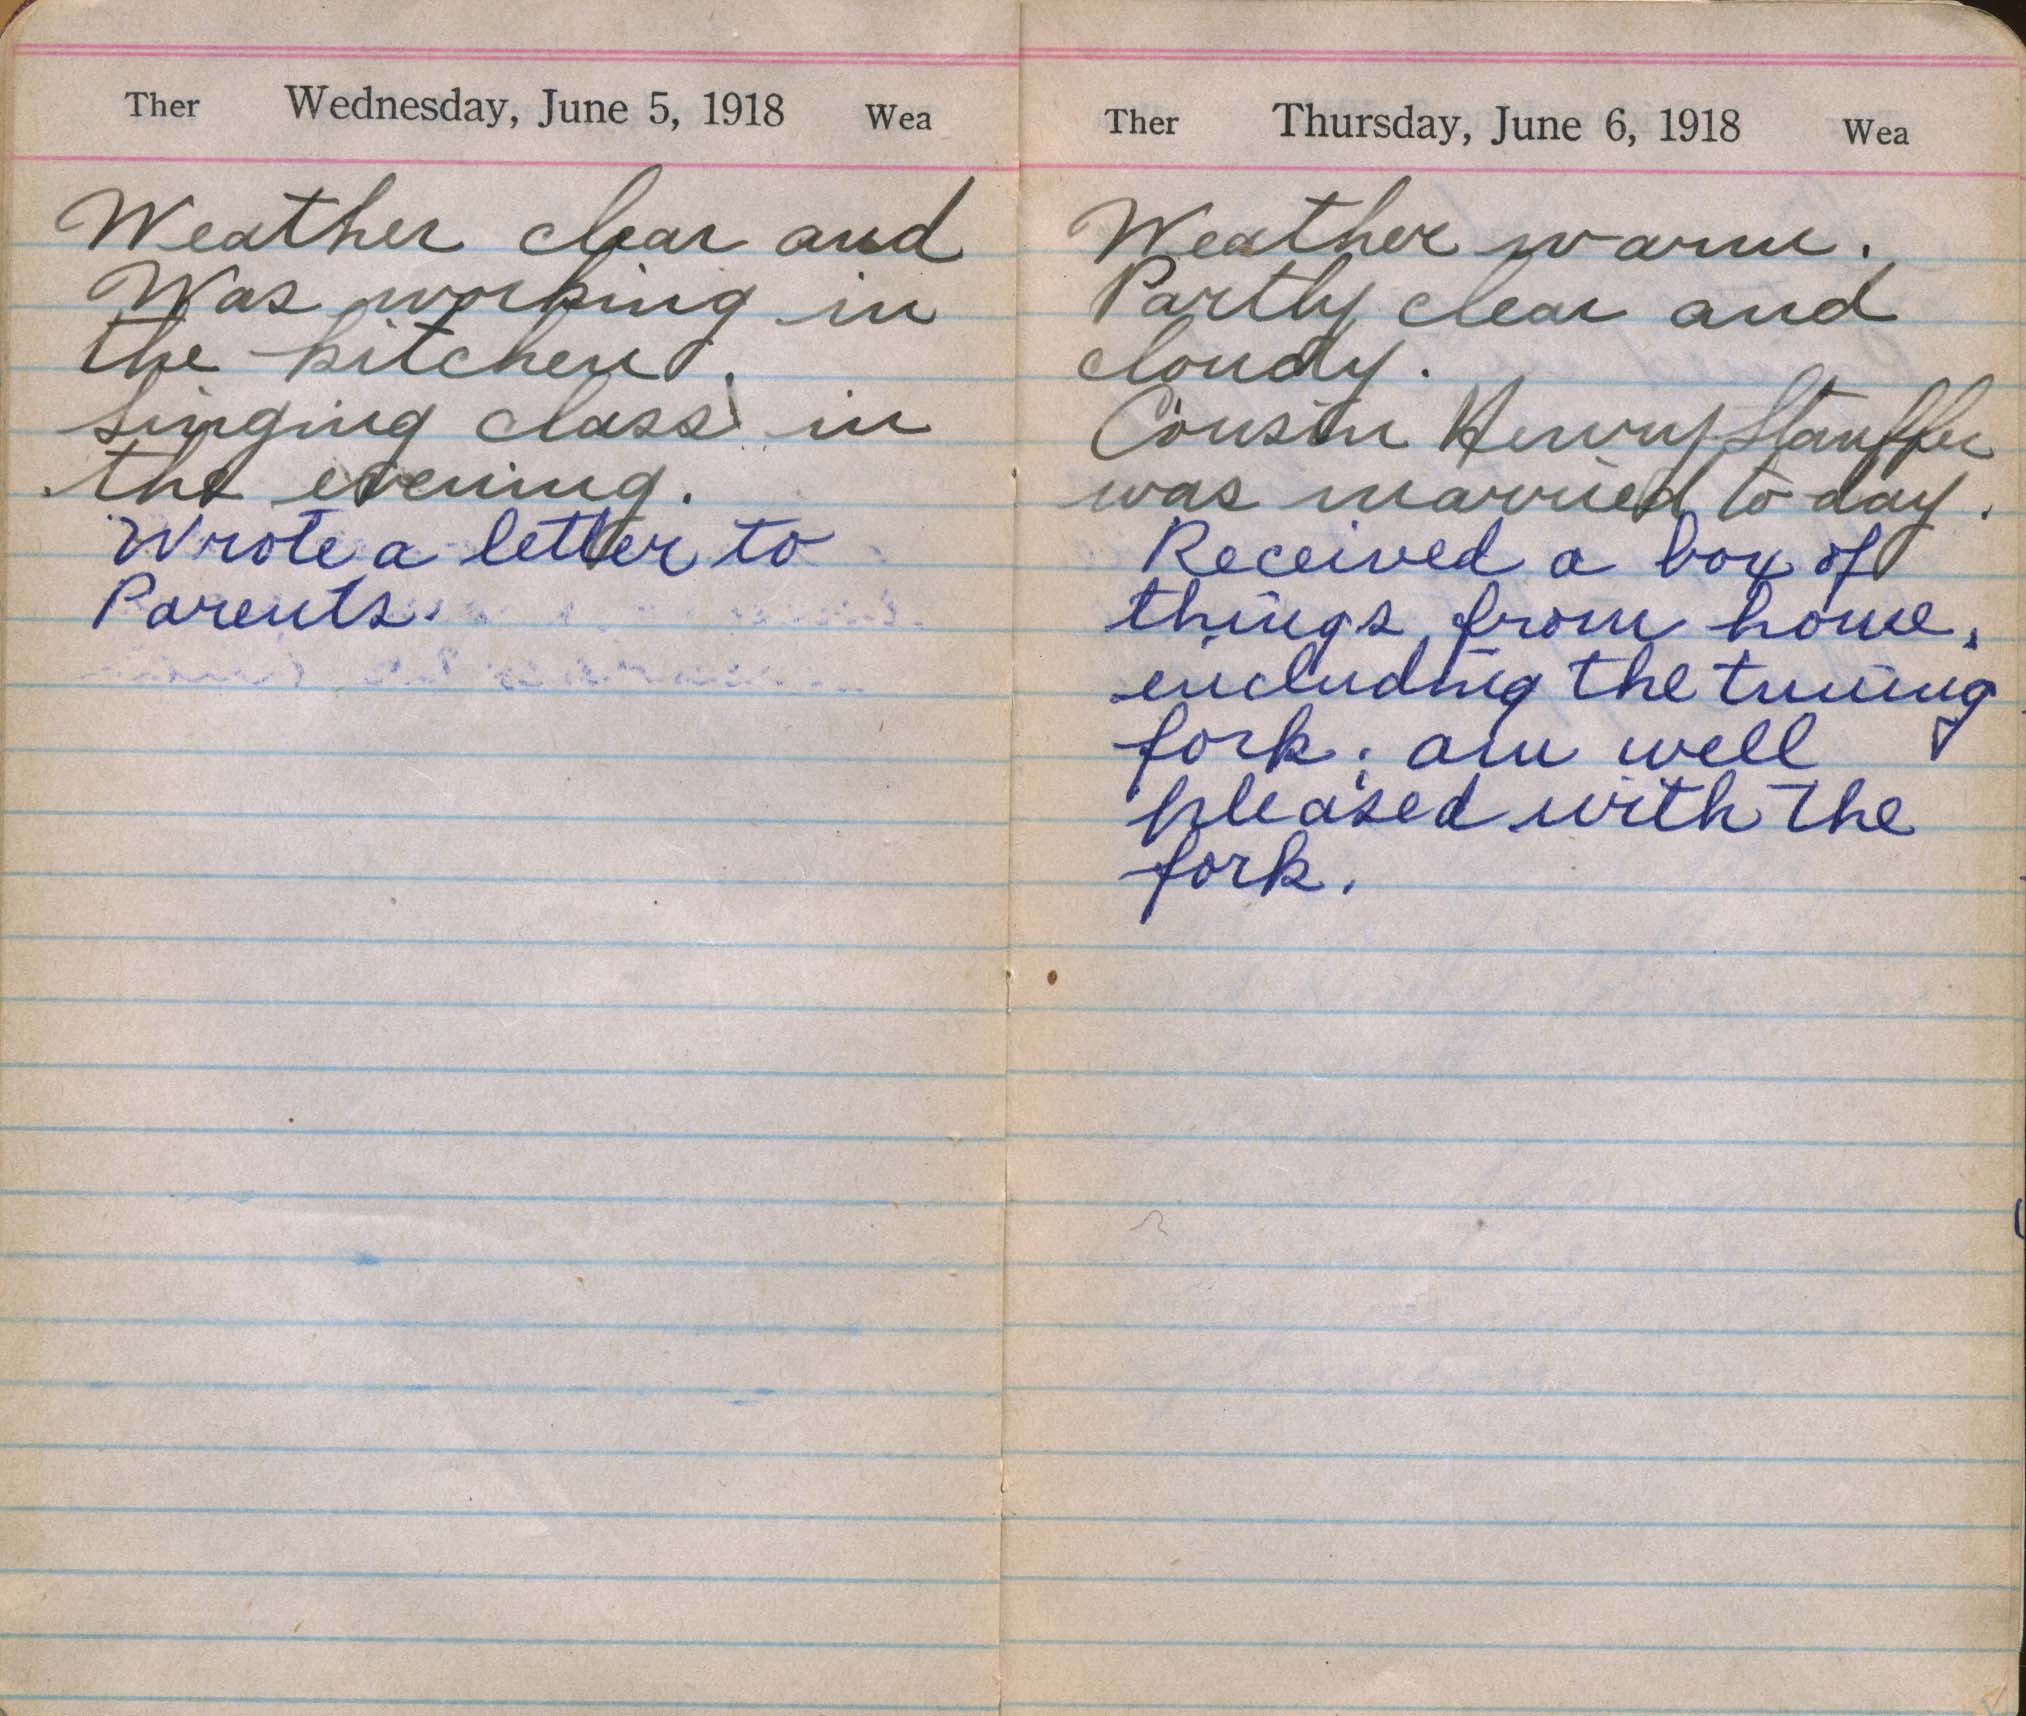 Ther Wednesday, June 5, 1918 Wea
Weather clear and
Was working in
the kitchen.
singing class in
the evening.
Wrote a letter to
Parents.
Ther Thursday, June 6, 1918 Wea
Weather warm.
Partly clear and
cloudy.
Cousin Henry Stauffer
was married to day.
Received a box of
things from home,
including the tuning
fork; am well
pleased with the
fork.